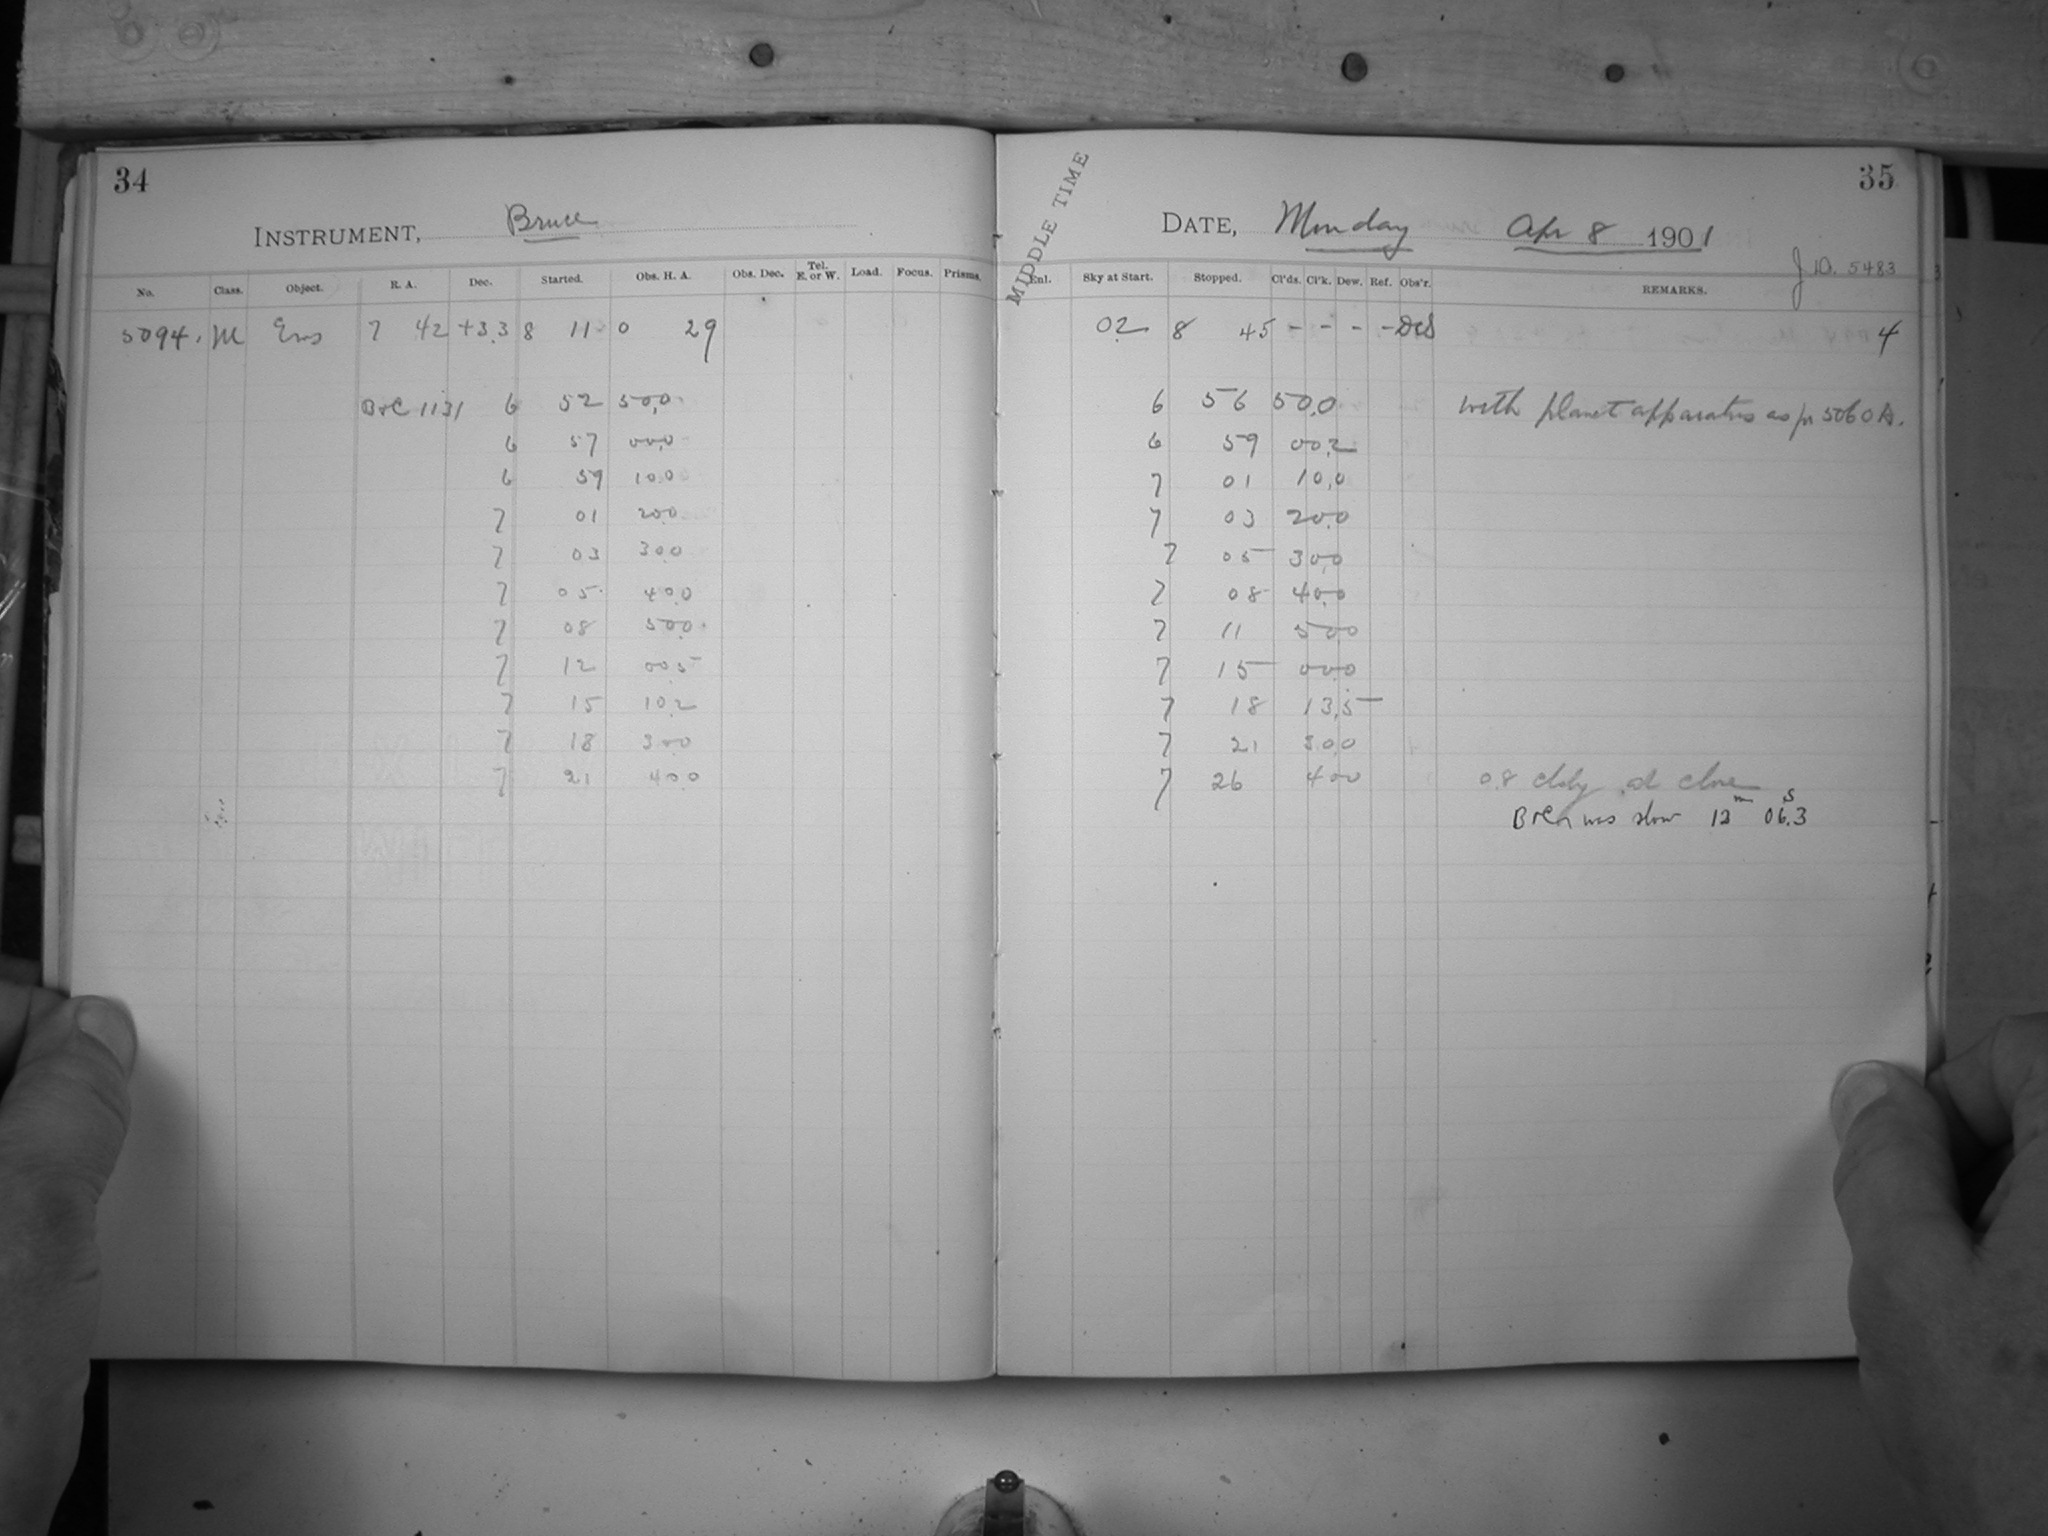 34
INSTRUMENT, Bruce
No. Class. Object. R. A. Dec. Started. Obs. H. A. Obs. Dec. Tel. E. or W. Load. Focus. Prisms.
5094. M Eros 7 42 +3.3 8 11 0 29
B+C 1131 6 52 50.0
6 57 00.0
6 59 10.0
7 01 20.0
7 03 30.0
7 05 40.0
7 08 50.0
7 12 00.5
7 15 10.2
7 18 30.0
7 21 40.0
35
MIDDLE TIME
DATE, Monday Apr 8 1901
J.D. 5483
Enl. Sky at Start. Stopped. Cl'ds. Cl'k. Dew. Ref. Obs'r. REMARKS.
02 8 45 - - - - 4
6 56 50.0 with planet apparatus as pr 5060 A.
6 59 00.2
7 01 10.0
7 03 20.0
7 05 30.0
7 08 40.0
7 11 50.0
7 15 00.0
7 18 13.5
7 21 30.0
7 26 40.0 0.8 cldy at close
B+C was slow 12m 06.3s